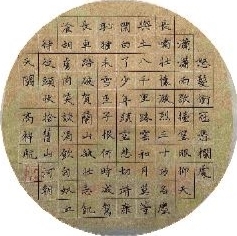 怒髮衝冠憑欄處
瀟瀟雨歇抬望眼仰天
長嘯壯懷激烈三十功名塵
與土八千里路雲和月莫等
閒白了少年頭空悲切靖康
恥猶未雪臣子恨何時滅駕
長車踏破賀蘭山缺壯志飢
餐胡虜肉笑談渴飲匈奴血
待從頭收拾舊山河朝
天闕